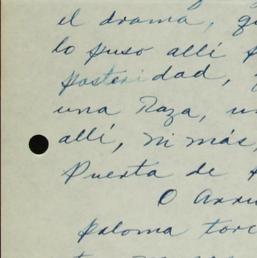 el drama, q
lo puso allí p
posteridad, y
una Raza, un
allí, ni más,
Puerta de
O Arri
paloma torc